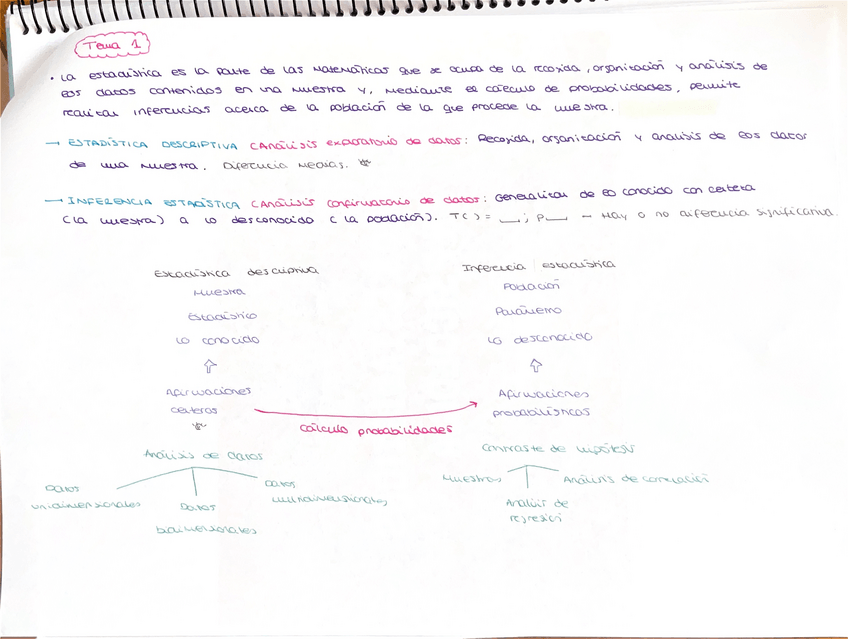 Tema 1
• La estadística es la parte de las Matemáticas que se ocupa de la recogida, organización y análisis de
los datos contenidos en una muestra y, mediante el cálculo de probabilidades, permite
realizar inferencias acerca de la población de la que procede la muestra.
→ ESTADÍSTICA DESCRIPTIVA (Análisis exploratorio de datos: Recogida, organización y análisis de los datos
de una muestra. Diferencia medias.
→ INFERENCIA ESTADÍSTICA (Análisis confirmatorio de datos: Generalizar de lo conocido con certeza
(la muestra) a lo desconocido (la población). T( ) = __; p__ → Hay o no diferencia significativa.
Estadística descriptiva
Inferencia estadística
Muestra
Población
Estadístico
Parámetro
Lo conocido
Lo desconocido
Afirmaciones
certeras
Afirmaciones
probabilísticas
cálculo probabilidades
Análisis de datos
Contraste de hipótesis
Datos
unidimensionales
Datos
bidimensionales
Datos
multidimensionales
Muestras
Análisis de
regresión
Análisis de correlación